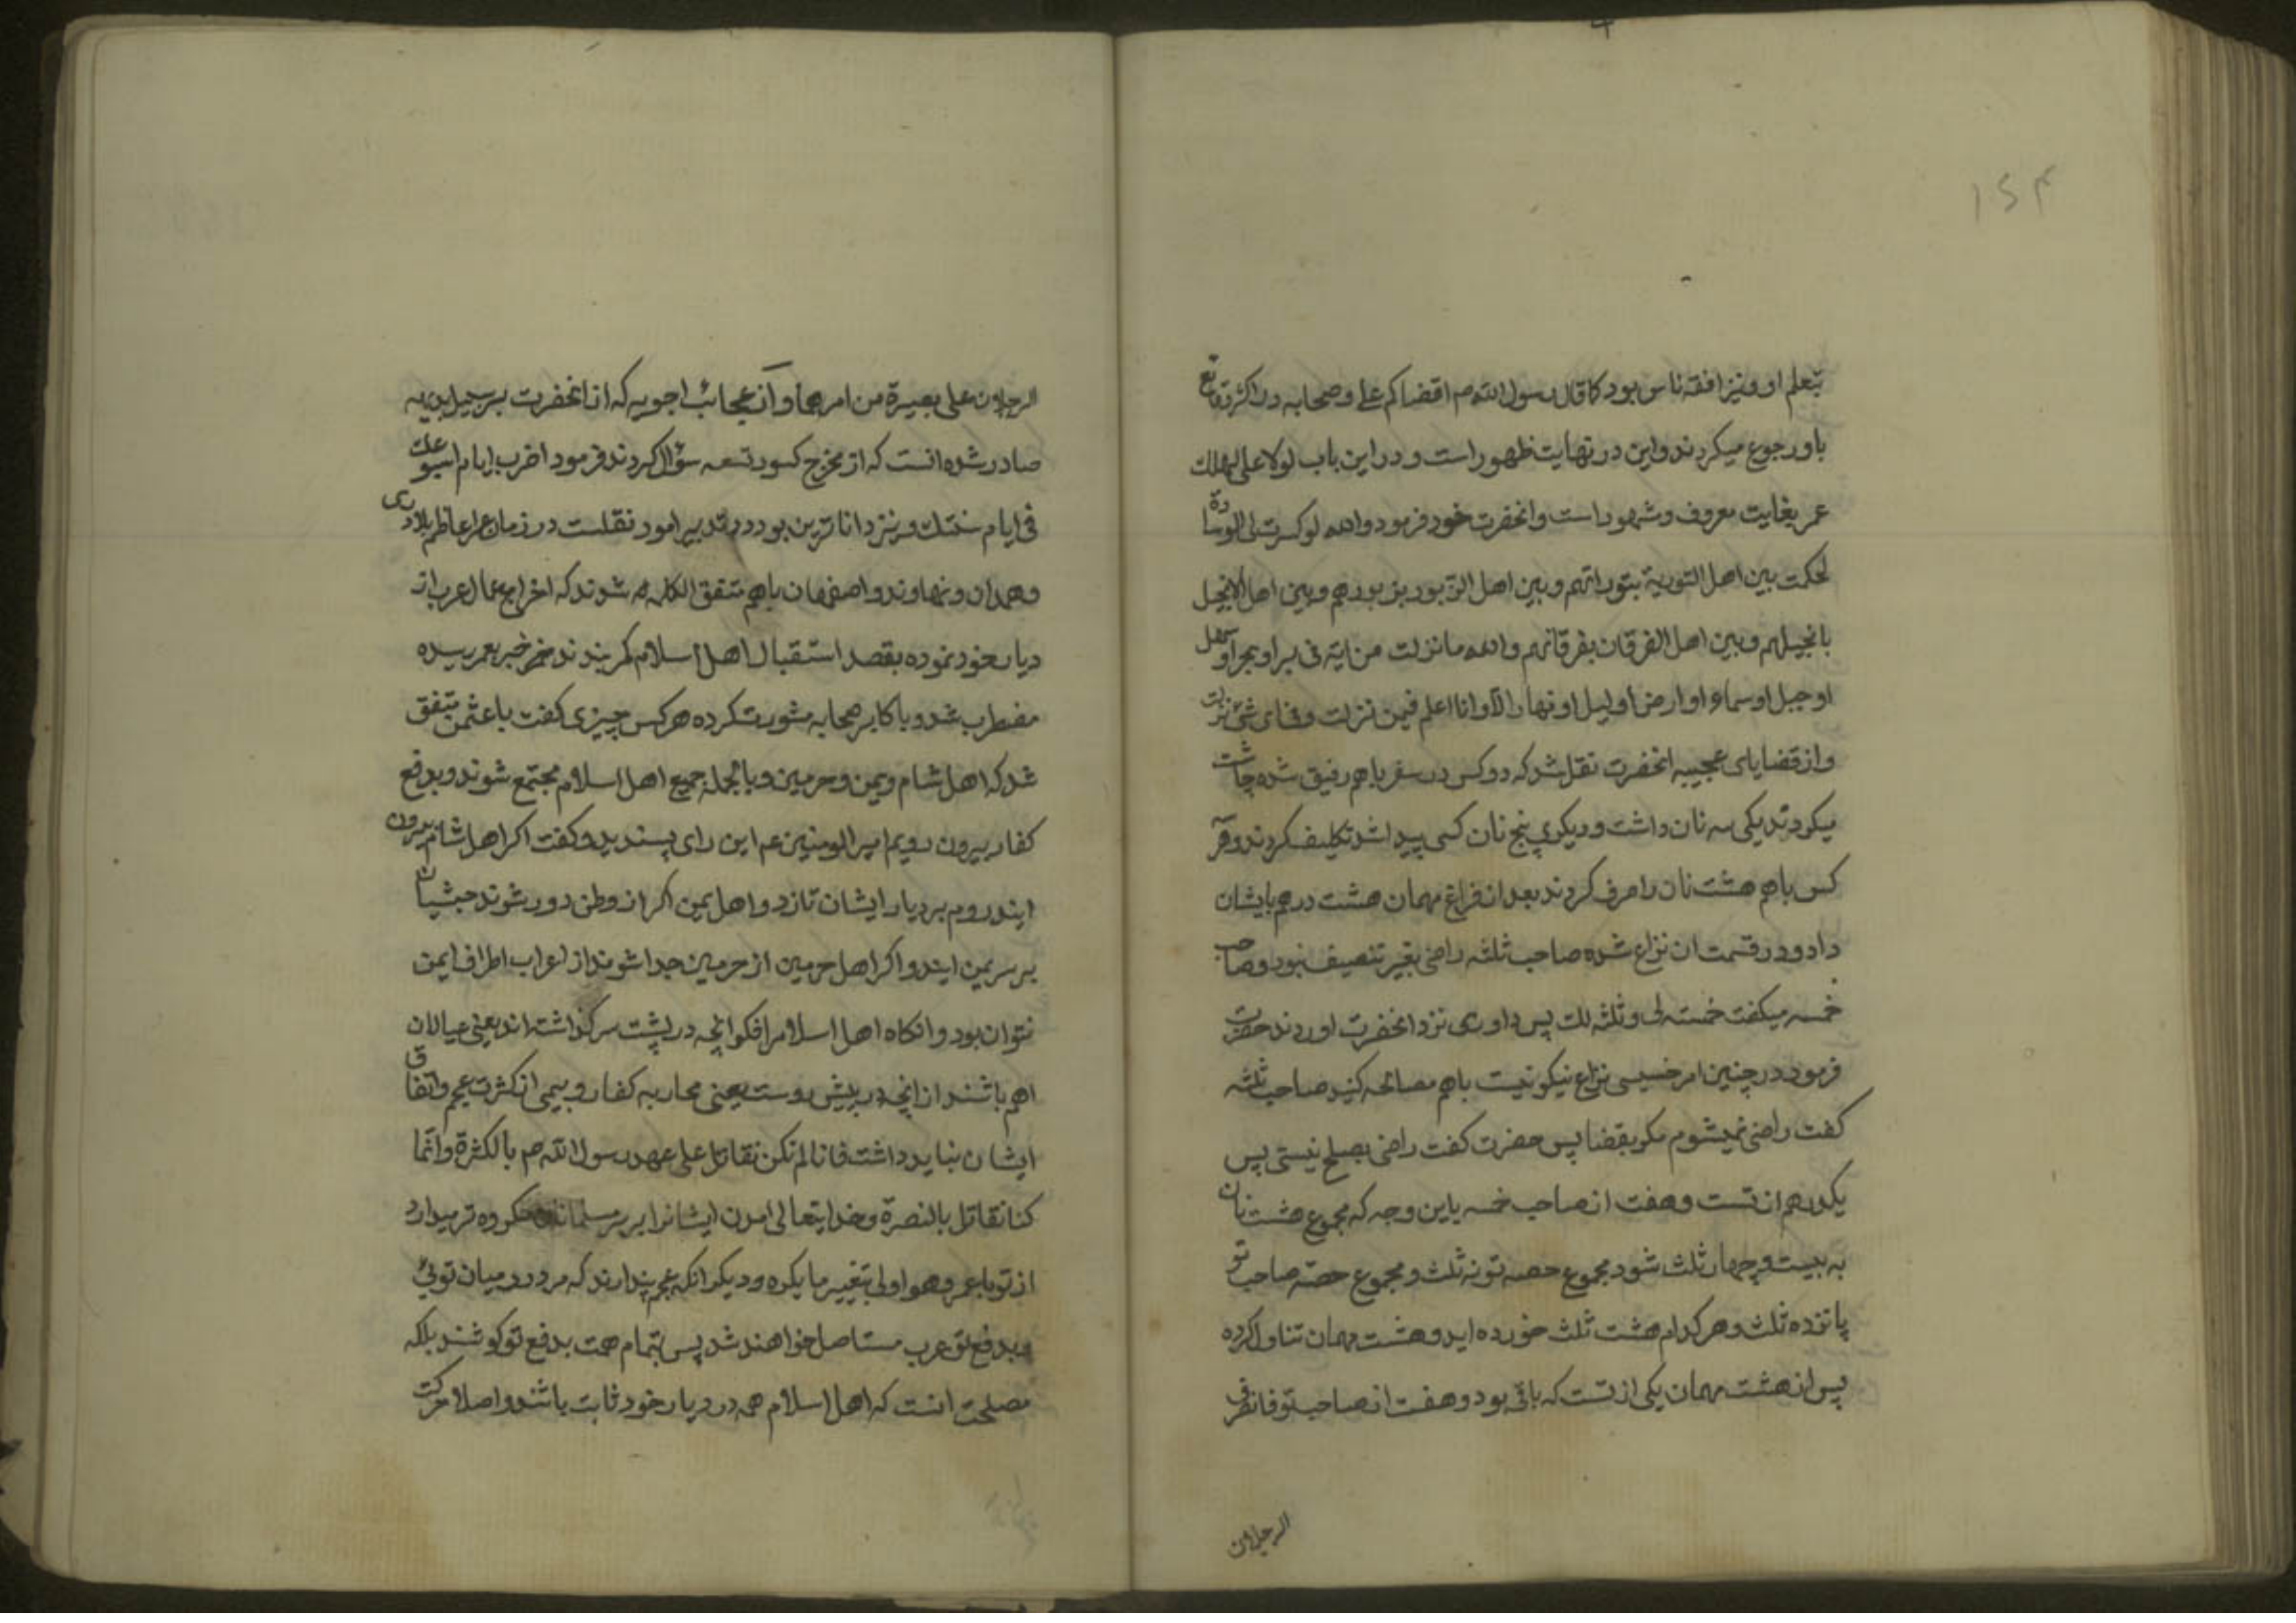 ۱۵۴
بتعلم او و نیز افقه ناس بود کما قال رسول الله ص اقضاکم علی و صحابه در اکثر وقایع
باو رجوع میکردند و این در نهایت ظهور است و در این باب لولا علی لهلک
عمر بغایت معروف و مشهور است و انحضرت خود فرمود والله لو کسرت لی الوسادة
لحکمت بین اهل التوریة بتوراتهم و بین اهل الزبور بزبورهم و بین اهل الانجیل
بانجیلهم و بین اهل الفرقان بفرقانهم والله ما نزلت من ایة فی بر او بحر او سهل
او جبل او سماء او ارض او لیل او نهار الا و انا اعلم فیمن نزلت و فی ای شئ نزلت
و از قضایای عجیبه انحضرت نقل شد که دو کس در سفر باهم رفیق شده چاشت
میکردند یکی سه نان داشت و دیگری پنج نان کسی پیدا شد تکلیف کردند و هر
کس باهم هشت نان را صرف کردند بعد از فراغ مهمان هشت درهم بایشان
داد و در قسمت ان نزاع شده صاحب ثلثه راضی بغیر تنصیف نبود و صاحب
خمسه میکفت خمسة لی و ثلثه لک پس داوری نزد انحضرت اوردند حضرت
فرمود در چنین امر خسیسی نزاع نیکو نیست باهم مصالحه کنید صاحب ثلثه
کفت راضی نمیشوم مکر بقضا پس حضرت کفت راضی بصلح نیستی پس
یکدرهم از تست و هفت از صاحب خمسه باین وجه که مجموع هشت نان
به بیست و چهار ثلث شود مجموع حصه تو نه ثلث و مجموع حصّه صاحب تو
پانزده ثلث و هر کدام هشت ثلث خورده اید و هشت مهمان تناول کرده
پس از هشت مهمان یکی از تست که باقی بود و هفت از صاحب تو فانصرف
الرجلان
الرجلان علی بصیرة من امرهما و از عجائب اجوبه که از انحضرت بر سبیل بدیه
صادر شده انست که از مخرج کسور تسعه سؤال کردند فرمود اضرب ایام اسبوعک
فی ایام سنتک و نیز داناترین بود در تدبیر امور نقلست در زمان عمر اعاظم بلاد ری
و همدان و نهاوند و اصفهان باهم متفق الکلمه شوند که اخراج عمال عرب از
دیار خود نموده بقصد استقبال اهل اسلام کمر بندند خبر بعمر رسیده
مضطرب شد و باکابر صحابه مشورت کرده هر کس چیزی کفت با عثمن متفق
شد که اهل شام و یمن و حرمین و بالجمله جمیع اهل اسلام مجتمع شوند و بدفع
کفار بیرون رویم امیر المومنین عم این رای پسندید و کفت اکر اهل شام بیرون
ایند روم بر دیار ایشان تازد و اهل یمن اکر از وطن دور شوند حبشیان
بر سر یمن ایند و اکر اهل حرمین از حرمین جدا شوند از اعراب اطراف ایمن
نتوان بود و انکاه اهل اسلام را فکر انچه در پشت سر کذاشته اند یعنی عیالان
اهم باشند از انچه در پیش روست یعنی محاربه کفار و بیمی از کثرت عجم و اتفاق
ایشان نباید داشت فانا لم نکن نقاتل علی عهد رسول الله ص بالکثرة و انما
کنا نقاتل بالنصرة و خدایتعالی امدن ایشانرا بر سر مسلمانان مکروه تر میدارد
از تو یا عمر و هو اولی بتغییر ما یکره و دیکر انکه عجم پندارند که مرد در میان توئی
و بدفع تو عرب مستاصل خواهند شد پس بتمام همت بدفع تو کوشند بلکه
مصلحت انست که اهل اسلام همه در دیار خود ثابت باشند و اصلا حرکت